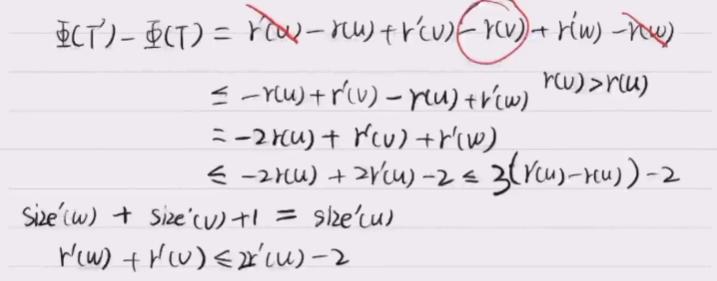 Φ(T') - Φ(T) = r'(u) - r(u) + r'(v) - r(v) + r'(w) - r(w)
≤ -r(u) + r'(v) - r(u) + r'(w) r(v) > r(u)
= -2r(u) + r'(v) + r'(w)
≤ -2r(u) + 2r'(u) - 2 ≤ 3(r'(u) - r(u)) - 2
size'(w) + size'(v) + 1 = size'(u)
r'(w) + r'(v) ≤ 2r'(u) - 2